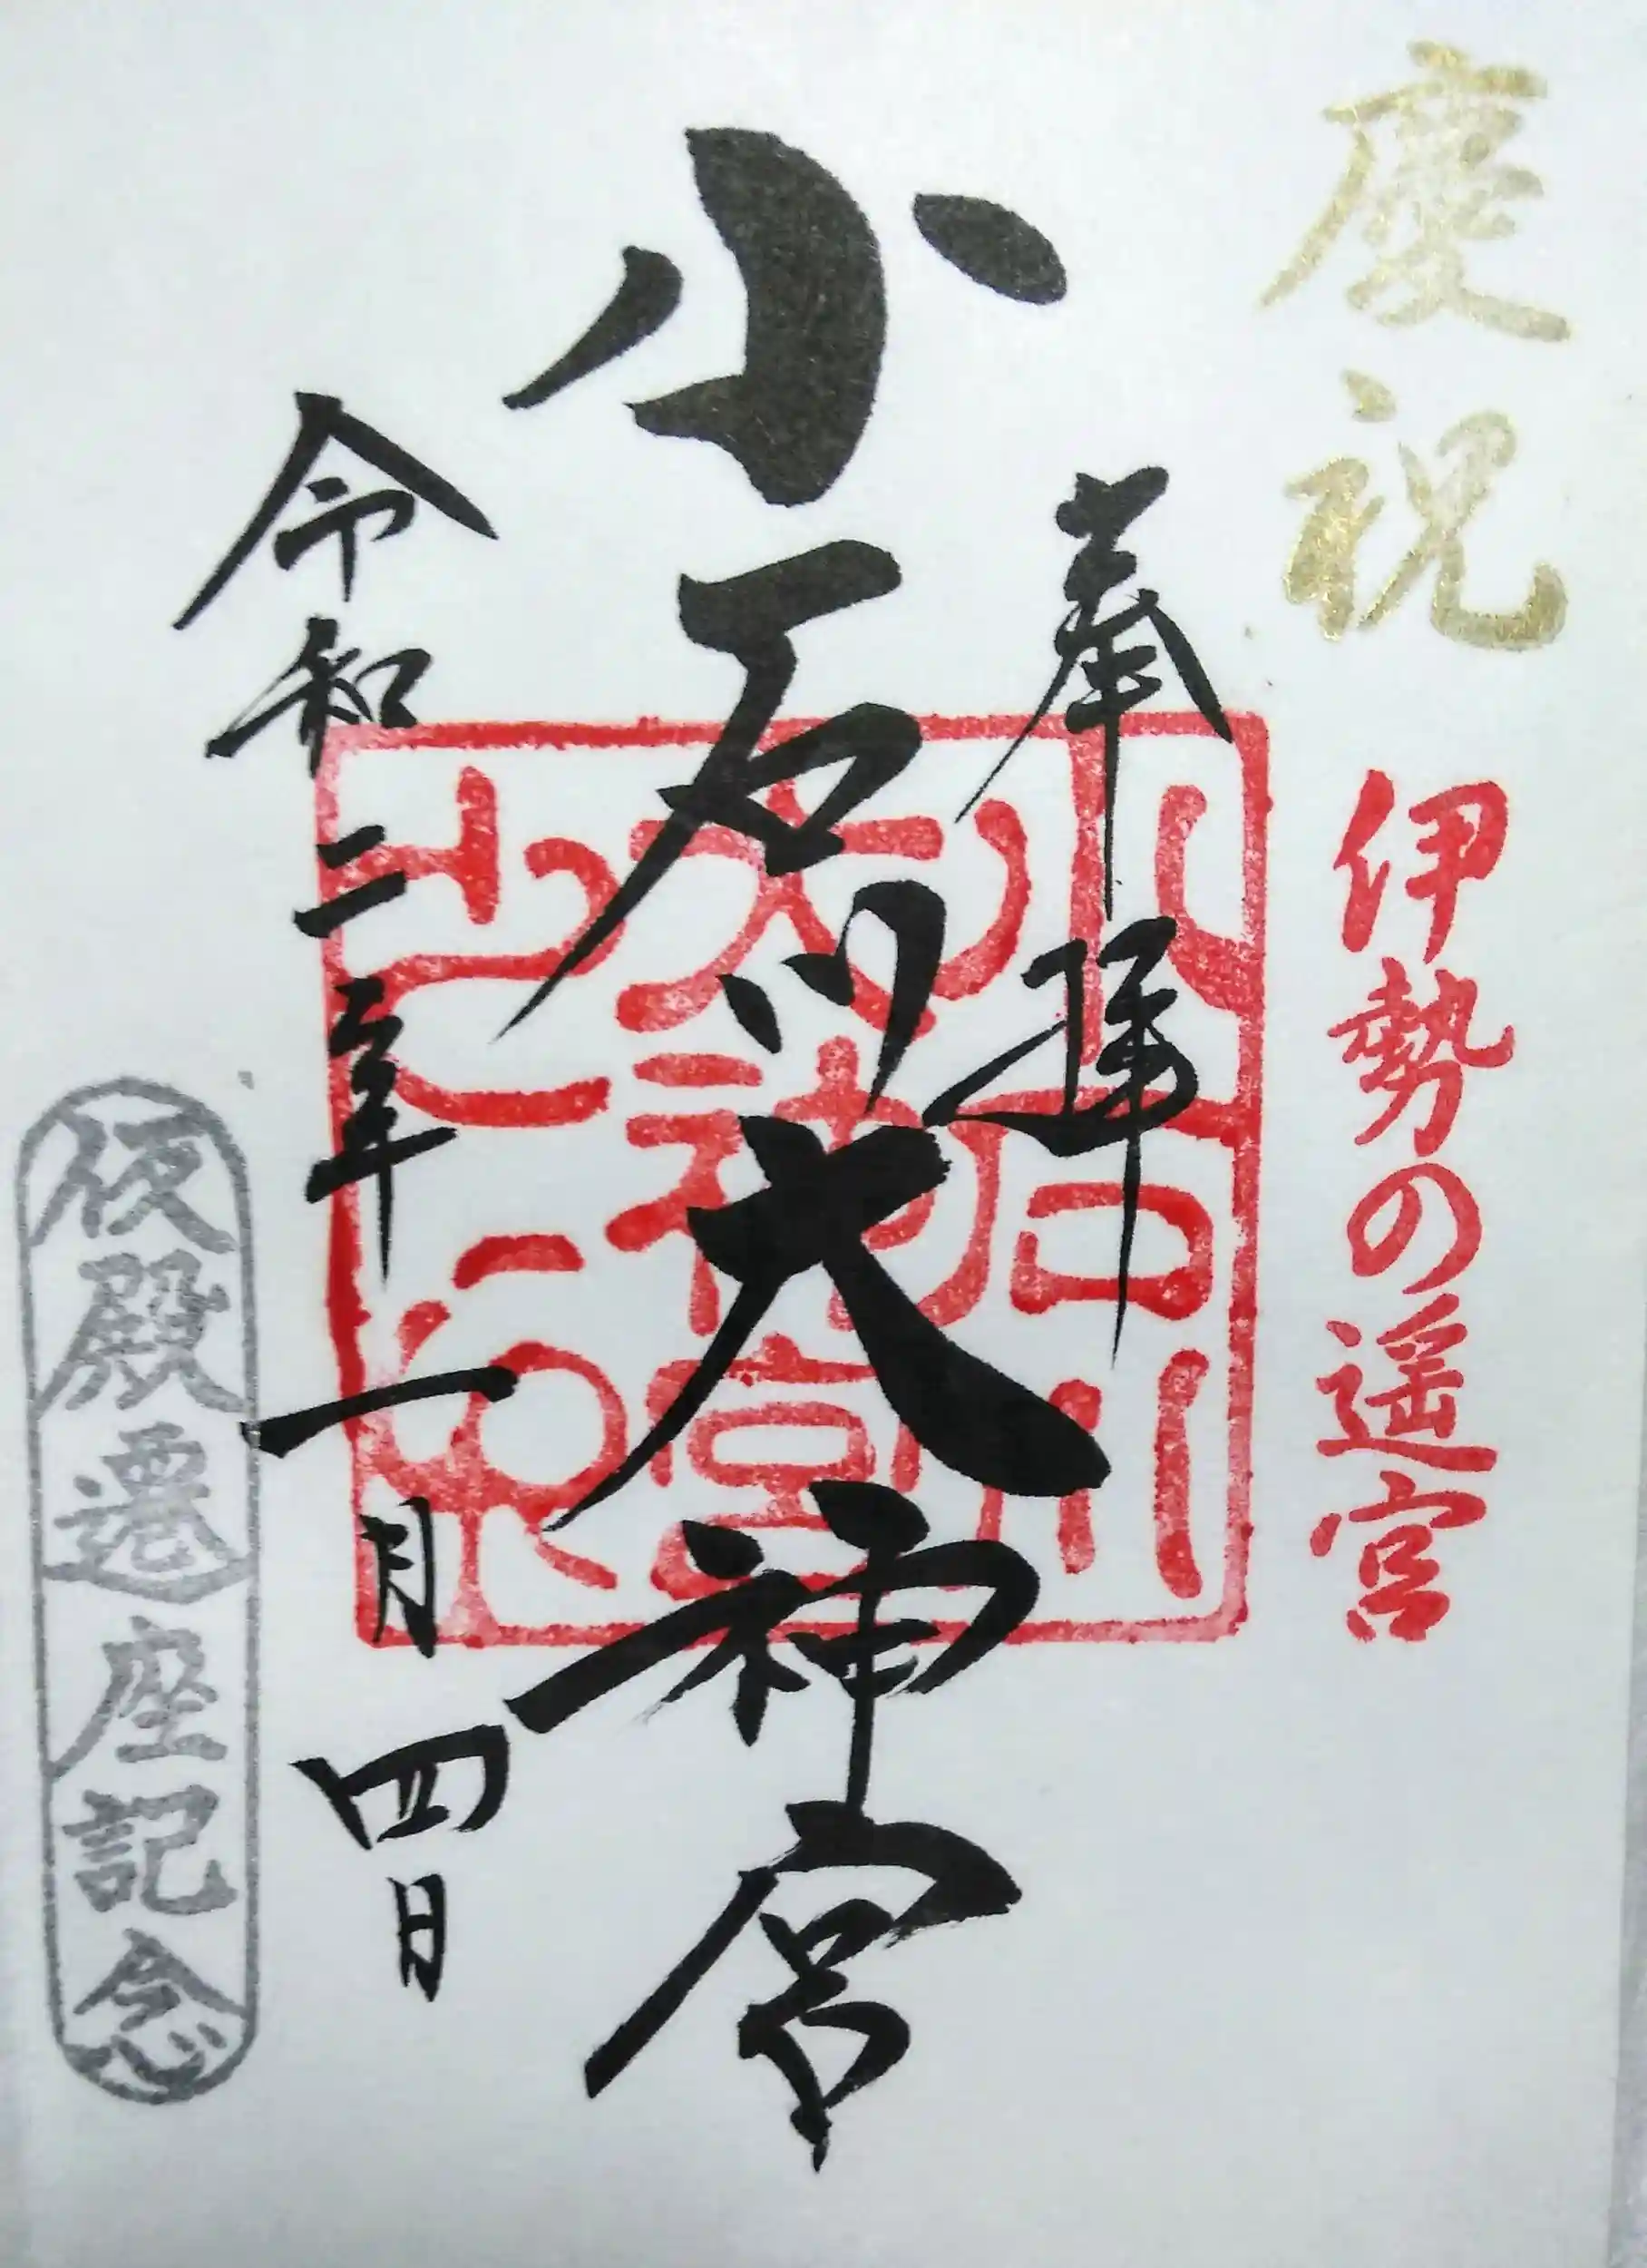 慶祝
伊勢の遥宮
奉拝
小石川大神宮
小石川
大神宮
令和二年一月四日
仮殿遷座記念